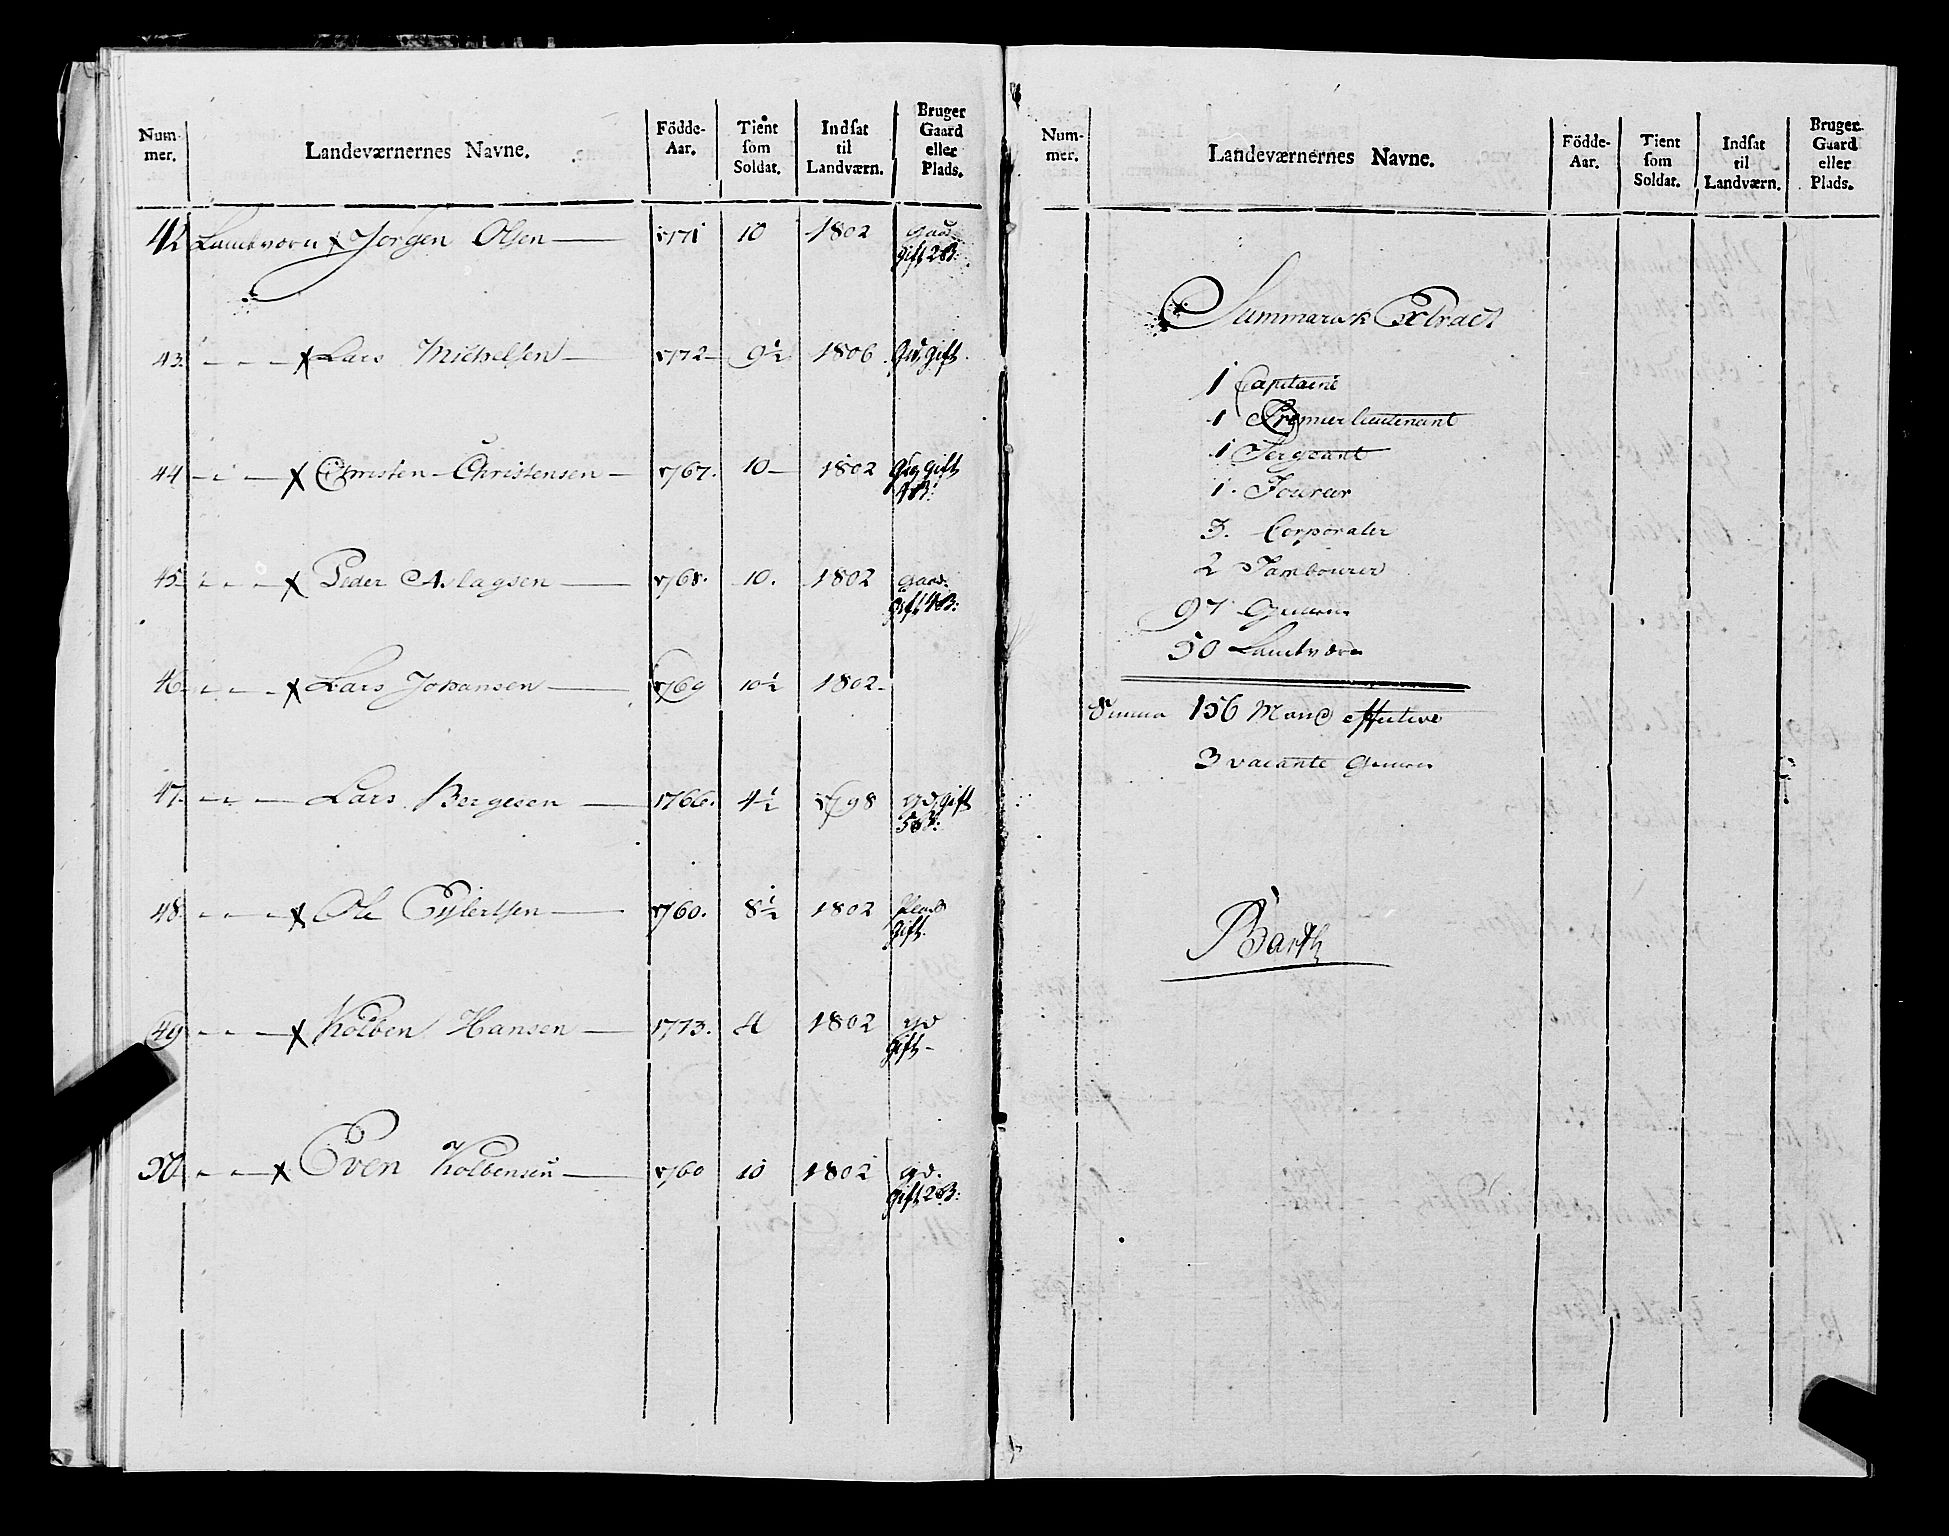 Num- mer. Landeværnernes Navne. Födde- Aar. Tient som Soldat. Indsat til Landværn. Bruger Gaard eller Plads.
42 Landværn x Jörgen Olsen — 1771 10 1802 gaad
Gift 2 B:
43. - - - x Lars Michelsen — 1772 - 9½ 1806 Gd, gift
44 - - - x Christen Christensen — 1767. 10 - 1802 Gift
4 B:
45. - - - x Peder Aslagsen — 1768. 10. 1802 gaad.
Gift 4 B:
46. - - - x Lars Johansen — 1769 10½ 1802 -
47. - - - Lars Bergesen — 1766. 4½ 1798 gd, gift
5 B:
48. - - - x Ole Eylertsen — 1760. 8½ 1802 Plads
Gift.
49 - - - x Kolben Hansen — 1773. 4 1802 gd
Gift -
50. - - - x Even Kolbensen — 1760 10 1802 gd.
Gift 2 B:
Num- mer. Landeværnernes Navne. Födde- Aar. Tient som Soldat. Indsat til Landværn. Bruger Gaard eller Plads.
Summarisk Extract
1 Capitaine
1 Premierlieutenant
1 Sergeant
1. Fourer
3. Corporaler
2 Tambourer
97 Gemene
50 Landværn
Summa 156 Mand effective
3 vacante Gemene
Barth